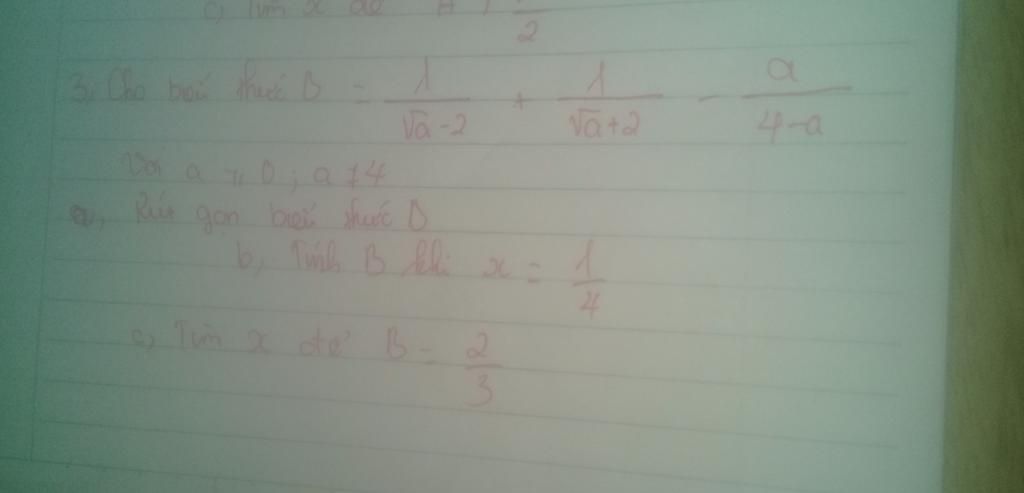 c, Tìm x để A > \frac{}{2}
3, Cho biểu thức B = \frac{1}{\sqrt{a}-2} + \frac{1}{\sqrt{a}+2} - \frac{a}{4-a}
Với a ≥ 0 ; a ≠ 4
a, Rút gọn biểu thức B
b, Tính B khi x = \frac{1}{4}
c, Tìm x để B = \frac{2}{3}